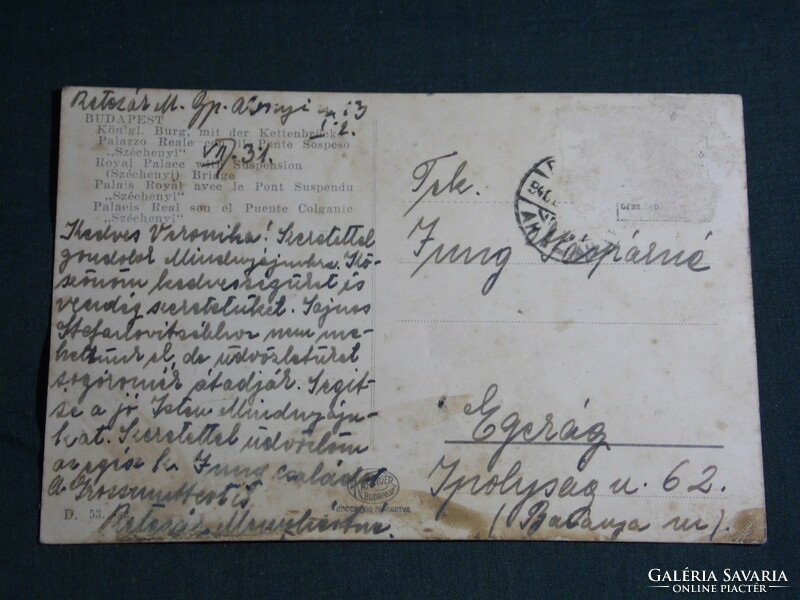 Retezár M. Gp. Aranyi u. 13
I. 2.
VII. 31.
BUDAPEST
Königl. Burg, mit der Kettenbrücke
Palazzo Reale con il Ponte Sospeso
„Széchenyi"
Royal Palace with Suspension
(Széchenyi) Bridge
Palais Royal avec le Pont Suspendu
„Széchenyi"
Palacis Real son el Puente Colgante
„Széchenyi"
Kedves Veronika! Szeretettel
gondolok Mindnyájukra. Kö-
szönöm kedvességüket és
vendég szeretetüket. Sajnos
Stefanovitsékhoz nem me-
hettünk el, de üdvözletüket
sógoromék átadják. Segít-
se a jó Isten Mindnyáju-
kat. Szeretettel üdvözlöm
az egész k. Jung családot
a Grossmuttert is
Retezár
D. 53.
Budapest
Tek.
Jung Gáspárné
Egerág
Ipolyság u. 62.
(Baranya m.)
GALÉRIA SAVARIA
ONLINE PIACTÉR